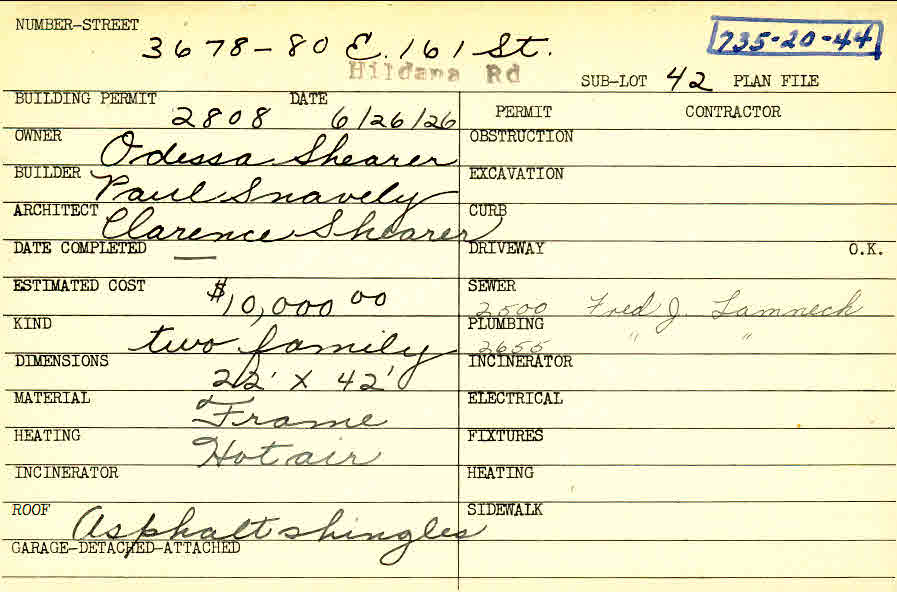 NUMBER-STREET
3678-80 E. 161 St.
735-20-44
Hildana Rd
SUB-LOT 42 PLAN FILE
BUILDING PERMIT 2808 DATE 6/26/26
PERMIT CONTRACTOR
OWNER Odessa Shearer
OBSTRUCTION
BUILDER Paul Snavely
EXCAVATION
ARCHITECT Clarence Shearer
CURB
DATE COMPLETED —
DRIVEWAY O.K.
ESTIMATED COST $10,000 00
SEWER 2500 Fred J. Lamneck
KIND two family
PLUMBING 2655 " "
DIMENSIONS 22' X 42'
INCINERATOR
MATERIAL Frame
ELECTRICAL
HEATING Hot air
FIXTURES
INCINERATOR
HEATING
ROOF Asphalt shingles
SIDEWALK
GARAGE-DETACHED-ATTACHED